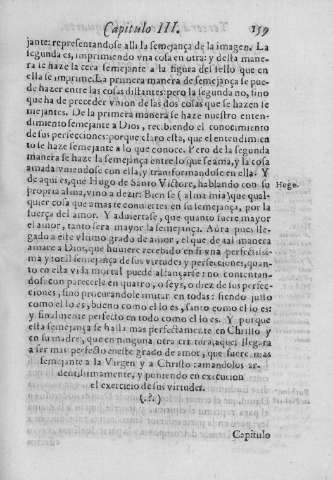 Capitulo III. 159
jante: representandose alli la semejança de la imagen. La
segunda es, imprimiendo vna cosa en otra: y desta mane-
ra se haze la cera semejante a la figura del sello que en
ella se imprime. La primera manera de semejança se pue-
de hazer entre las cosas distantes: pero la segunda no, sino
que ha de preceder vnion de las dos cosas que se hazen se
mejantes. De la primera manera se haze nuestro entendi-
miento semejante a Dios, recibiendo el conocimiento
de sus perfecciones: porque claro esta, que el entendimien
to se haze semejante a lo que conoce. Pero de la segunda
manera se haze la semejança entre lo que se ama, y la cosa
amada vniendose con ella, y transformandose en ella. Y
de aqui es, que Hugo de Santo Victore, hablando con su
Hugo.
propria alma, vino a dezir: Bien se (alma mia) que qual-
quier cosa que amas te conuierte en su semejança, por la
fuerça del amor. Y aduiertase, que quanto fuere mayor
el amor, tanto sera mayor la semejança. Aora pues lle-
gado a este vltimo grado de amor, el que de tal manera
amare a Dios, que huuiere recebido en si vna perfectissi-
ma y total semejança de sus virtudes y perfecciones, quan-
to en esta vida mortal puede alcançarse: no contentan-
dose con parecerla en quatro, o seys, o diez de sus perfec-
ciones, sino procurandole imitar en todas: siendo justo
como el lo es, bueno como el lo es, santo como el lo es:
y finalmente perfecto en todo como el lo es. Y porque
esta semejança se halla mas perfectamente en Christo y
en su madre, que en ninguna otra criatura, aquel llegara
a ser mas perfecto en este grado de amor, que fuere mas
semejante a la Virgen y a Christo: amandolos ar-
dentissimamente, y poniendo en execucion
el exercicio de sus virtudes.
(.?.)
Capitulo